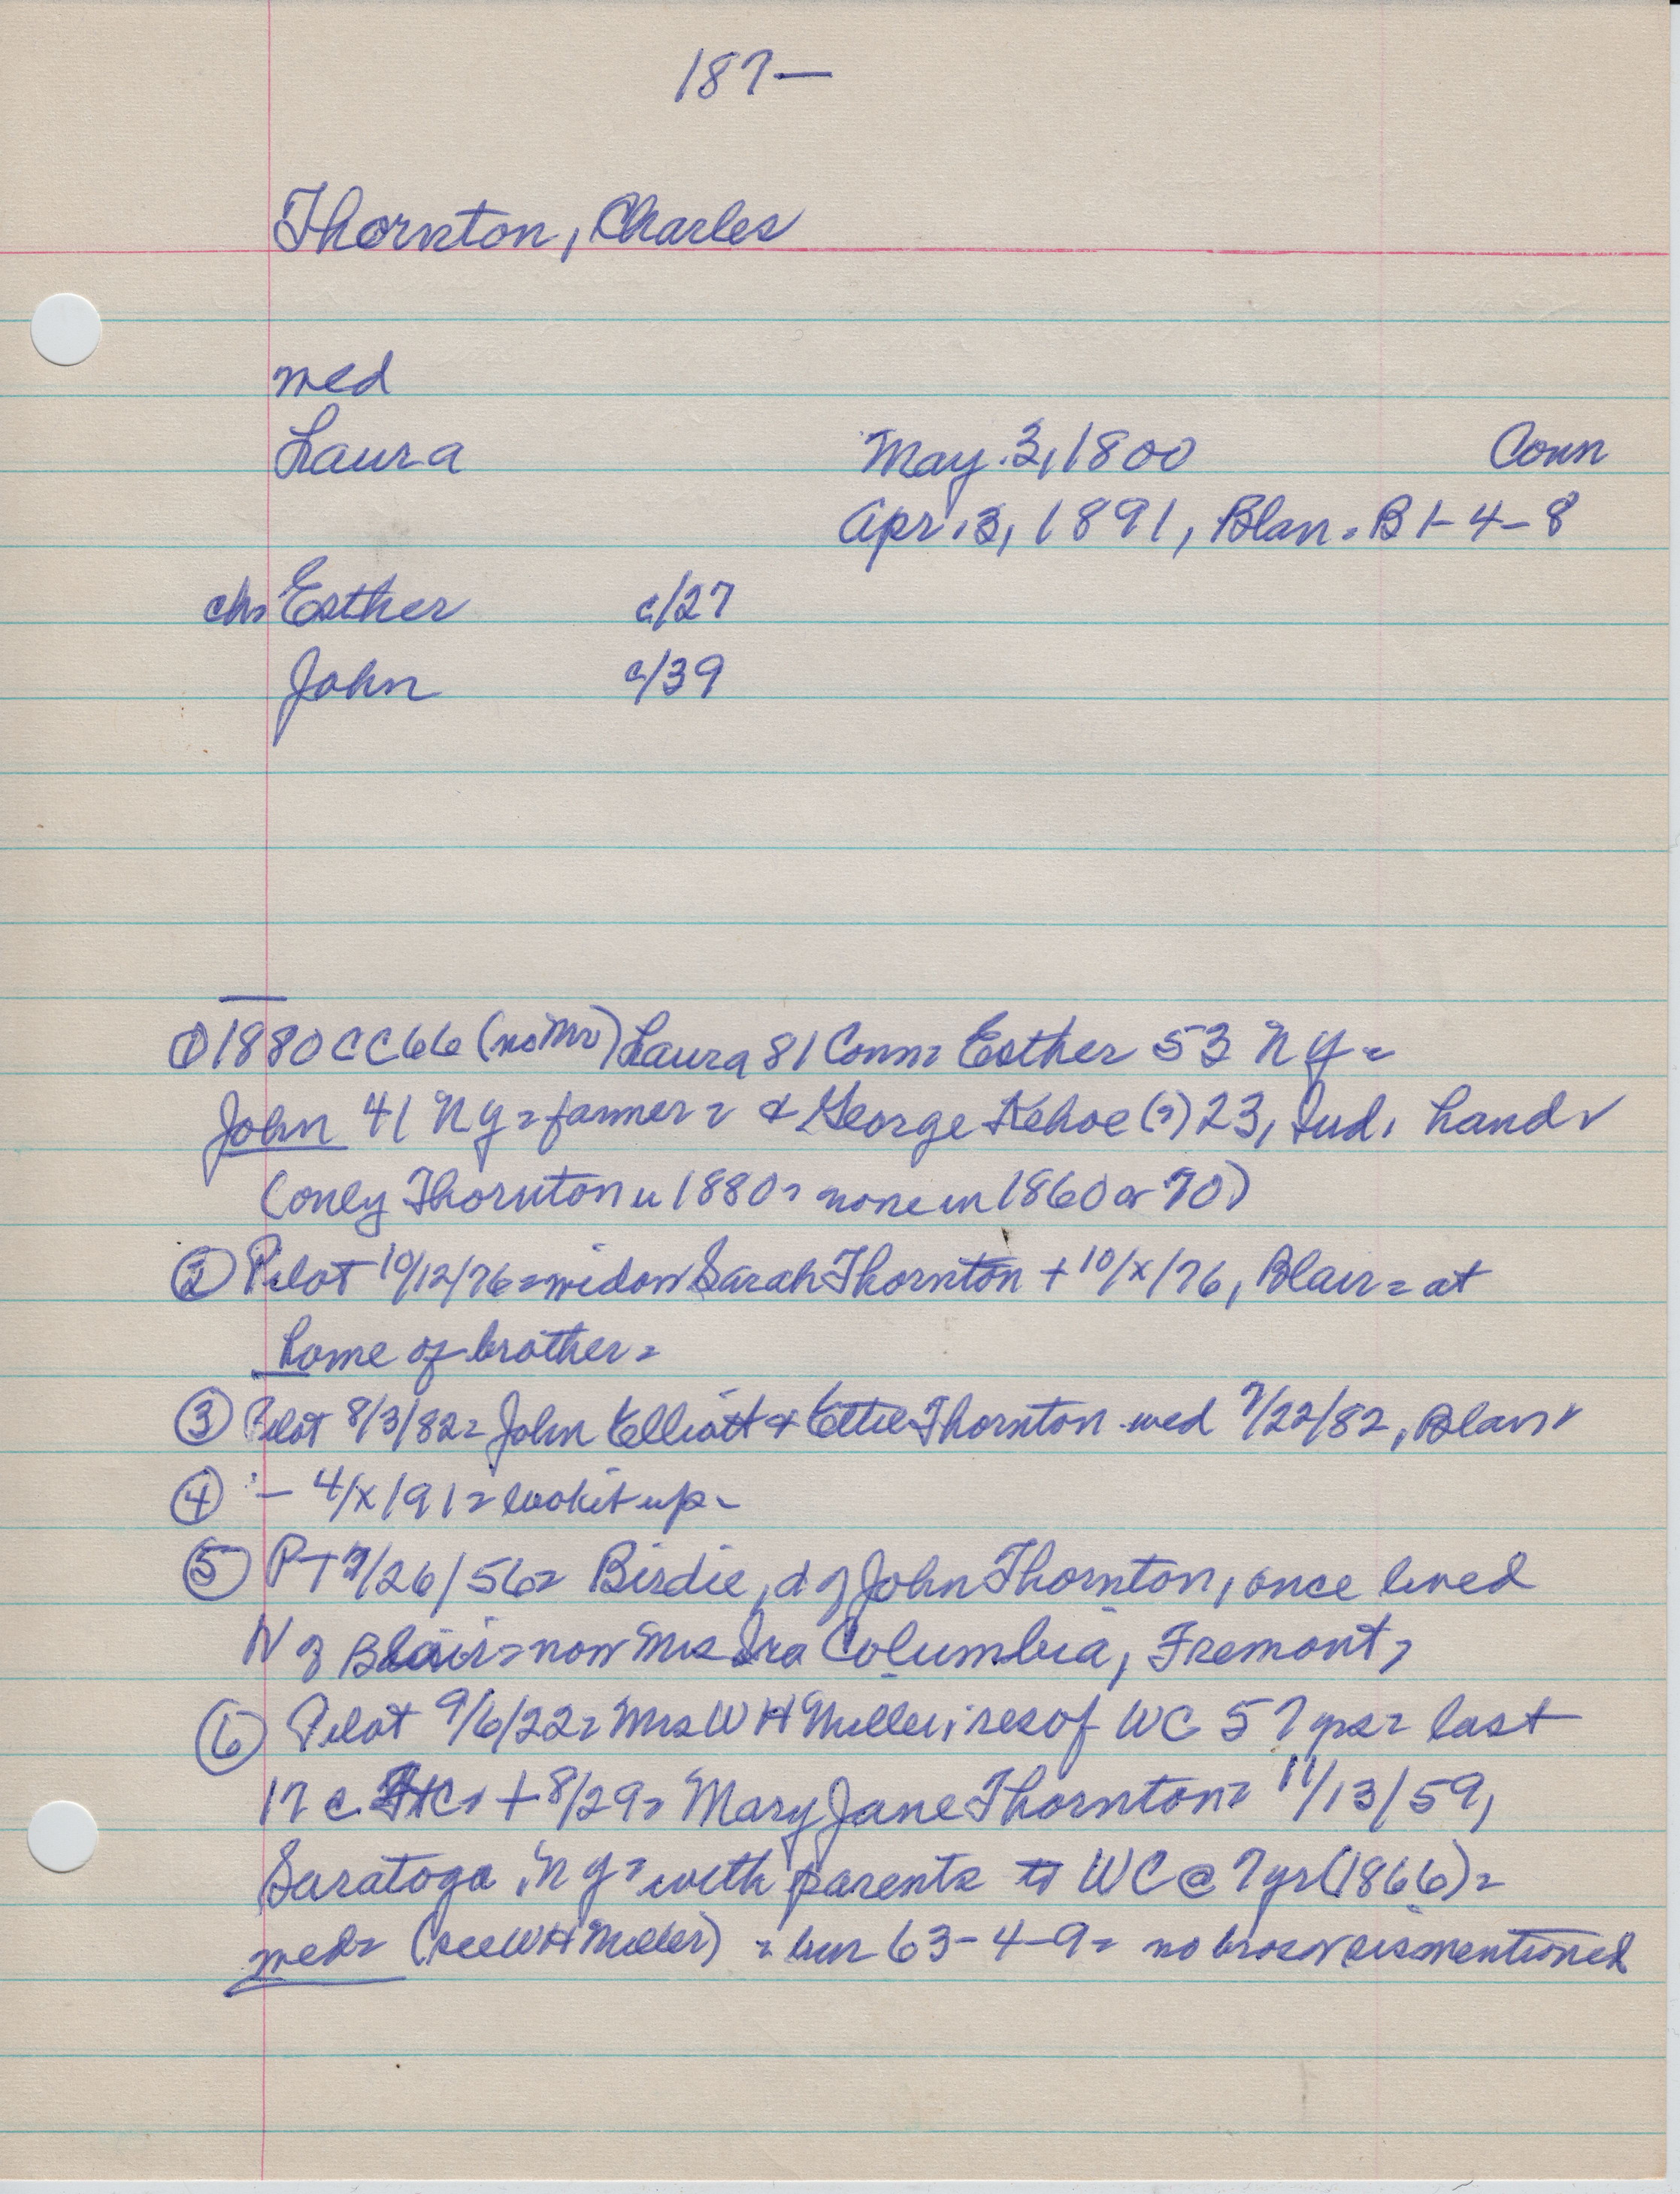 187—
Thornton, Charles
wed
Laura May 3, 1800 Conn
Apr 3, 1891, Blair = B 1-4-8
ch= Esther c/27
John c/39
① 1880 CC66 (no Mr) Laura 81 Conn = Esther 53 NY =
John 41 NY = farmer = & George Kehoe (?) 23, Ind, hand =
(only Thornton in 1880 = none in 1860 or 70)
② Pilot 10/12/76 = widow Sarah Thornton + 10/x/76, Blair = at
home of brother =
③ Pilot 8/3/82 = John Elliott & Ettie Thornton wed 7/22/82, Blair =
④ " — 4/x/91 = look it up =
⑤ P-T 7/26/56 = Birdie, d of John Thornton, once lived
N of Blair = now Mrs Ira Columbia, Fremont =
⑥ Pilot 9/6/22 = Mrs W H Miller, res of WC 57 yrs = last
17 c. + 8/29 = Mary Jane Thornton = 11/13/59,
Saratoga, NY = with parents to WC @ 7 yr (1866) =
wed = (see WH Miller) = bur 63-4-9 = no bros or sis mentioned